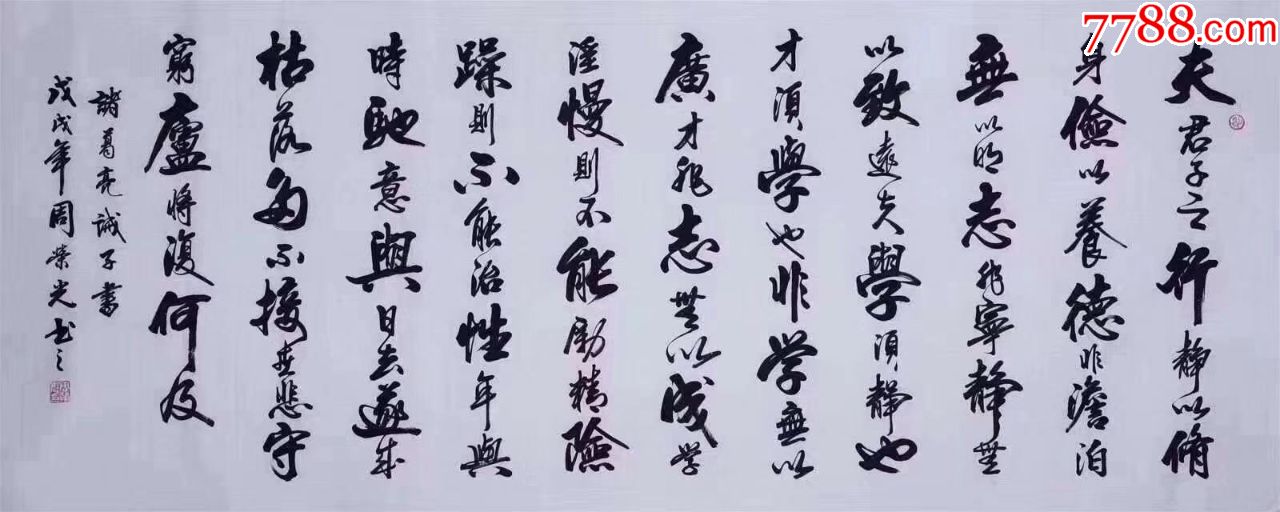 7788.com
夫君子之行靜以脩
身儉以養德非澹泊
無以明志非寧靜無
以致遠夫學須靜也
才須學也非学無以
廣才非志無以成学
淫慢則不能励精險
躁則不能治性年與
時馳意與日去遂成
枯落多不接世悲守
窮廬將復何及
諸葛亮誡子書
戊戌年周榮光书之